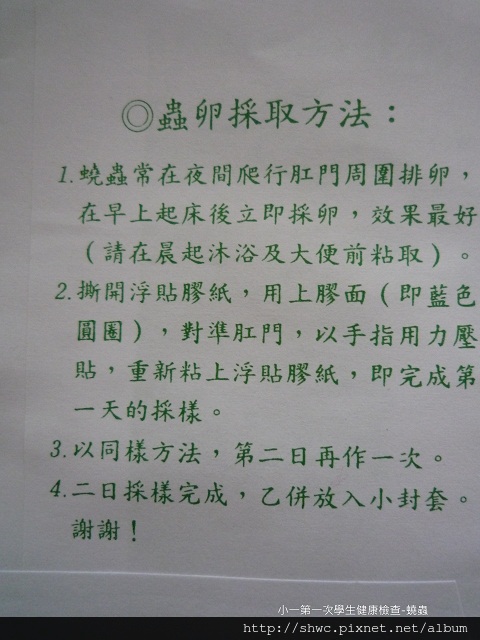 ◎蟲卵採取方法：
1.蟯蟲常在夜間爬行肛門周圍排卵，
在早上起床後立即採卵，效果最好
（請在晨起沐浴及大便前粘取）。
2.撕開浮貼膠紙，用上膠面（即藍色
圓圈），對準肛門，以手指用力壓
貼，重新粘上浮貼膠紙，即完成第
一天的採樣。
3.以同樣方法，第二日再作一次。
4.二日採樣完成，乙併放入小封套。
謝謝！
小一第一次學生健康檢查-蟯蟲
http://shwc.pixnet.net/album